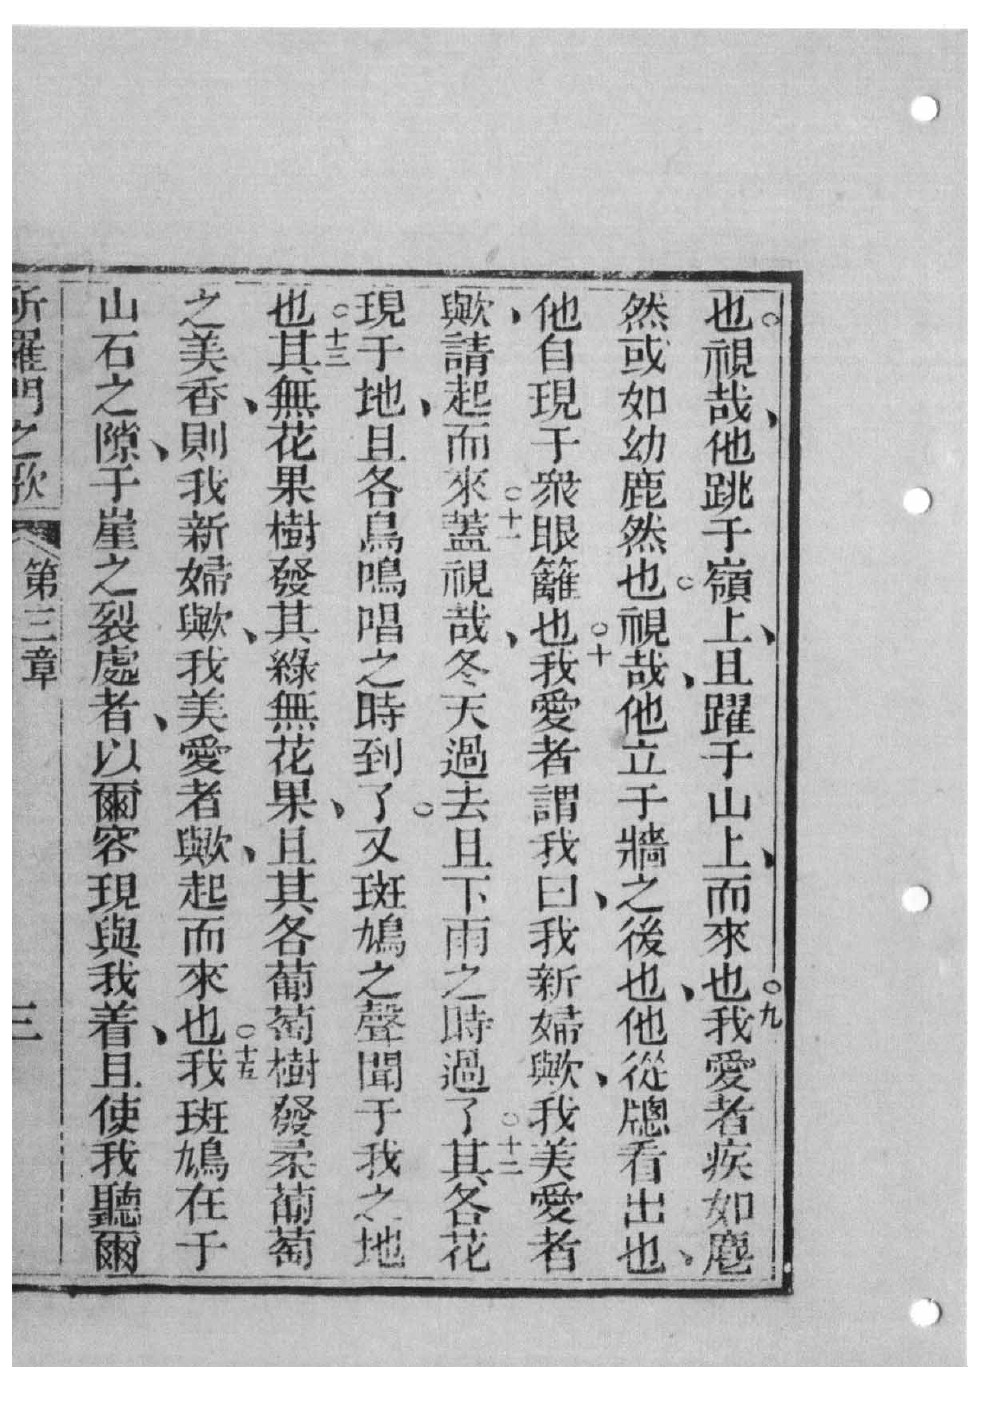 也。視哉、他跳于嶺上、且躍于山上、而來也。九我愛者疾如麀
然或如幼鹿然也。視哉、他立于牆之後也、他從牕看出也、
他自現于衆眼籬也。十我愛者謂我曰、我新婦歟、我美愛者
歟、請起而來。十一蓋視哉、冬天過去且下雨之時過了。十二其各花
現于地、且各鳥鳴唱之時到了。又斑鳩之聲聞于我之地
也。十三其無花果樹發其綠無花果、且其各葡萄樹發柔葡萄
之美香、則我新婦歟、我美愛者歟、起而來也。十五我斑鳩在于
山石之隙、于崖之裂處者、以爾容現與我着、且使我聽爾
所羅門之歌 第三章 三